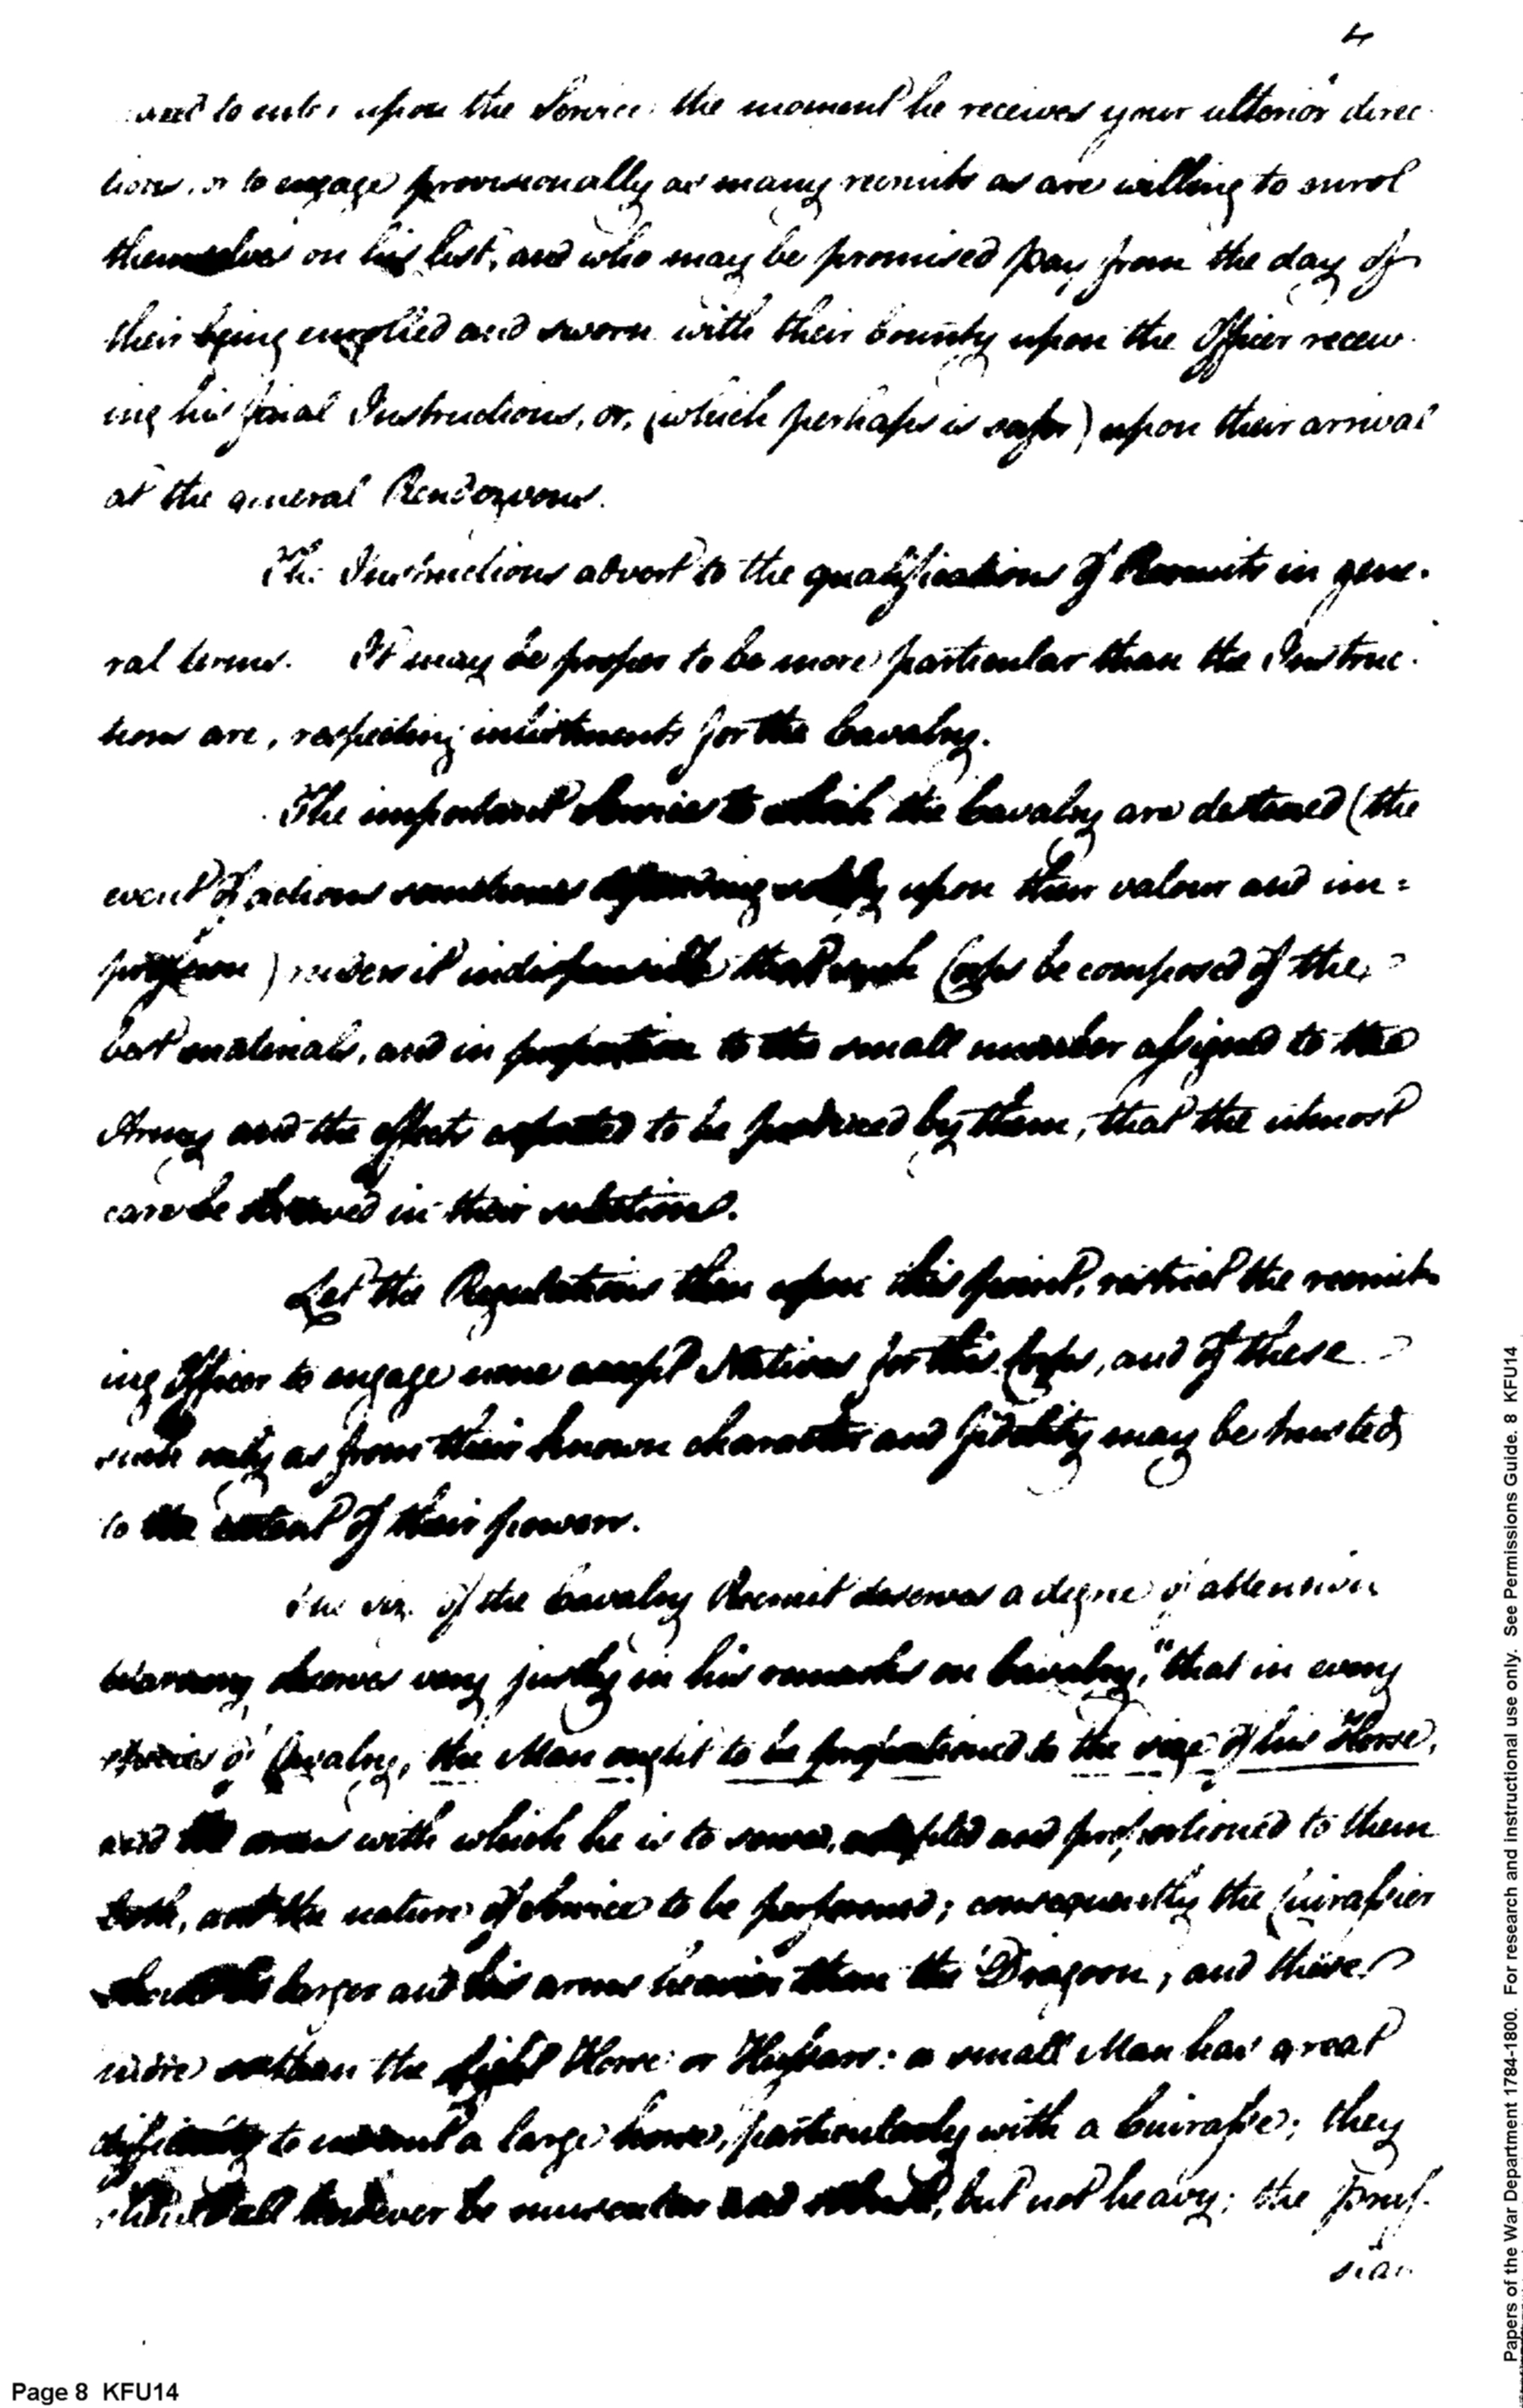 4
to enter upon the Service, the moment he receives your ulterior direc-
tions, or to engage provisionally as many recruits as are willing to enrol
themselves on his list, and who may be promised pay from the day of
their being enrolled and sworn with their bounty upon the Officer receiv-
ing his final Instructions, or, (which perhaps is safer) upon their arrival
at the general Rendezvous.
The Instructions advert to the qualifications of Recruits in gene-
ral terms. It may be proper to be more particular than the Instruc-
tions are, respecting inlistments for the Cavalry.
The important service to which the Cavalry are destined (the
event of actions sometimes depending solely upon their valour and im=
pression) renders it indispensible that such Corps be composed of the
best materials, and in proportion to the small number assigned to the
Army and the effects expected to be produced by them, that the utmost
care be observed in their selection.
Let the Regulations then upon this point, restrict the recruit-
ing Officer to engage none except Natives for this Corps, and of these
such only as from their known character and fidelity may be trusted
to the extent of their powers.
The size of the Cavalry Recruit deserves a degree of attention
Warnery observes very justly in his remarks on Cavalry, "that in every
species of Cavalry, the Man ought to be proportioned to the size of his Horse,
and the arms with which he is to serve, adapted and proportioned to them
both, and the nature of service to be performed; consequently the Cuirassier
should be larger and his arms heavier than the Dragoon, and these
more so than the light Horse or Hussars: a small Man has great
difficulty to mount a large horse, particularly with a Cuirasse; they
should all however be muscular and robust, but not heavy; the Prus-
sian
Page 8 KFU14
Papers of the War Department 1784-1800. For research and instructional use only. See Permissions Guide. 8 KFU14